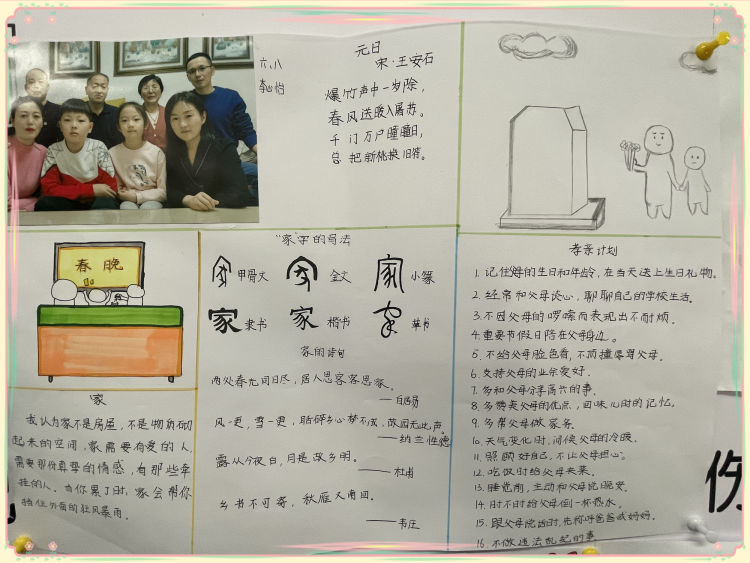 六.八
李心怡
元日
宋·王安石
爆竹声中一岁除，
春风送暖入屠苏。
千门万户曈曈日，
总把新桃换旧符。
春晚
家
我认为家不是房屋，不是物质砌
起来的空间，家需要有爱的人，
需要那份真挚的情感，有那些牵
挂的人。当你累了时，家会帮你
挡住外面的狂风暴雨。
"家"字的写法
甲骨文
金文
小篆
家 隶书
家 楷书
草书
家的诗句
两处春光同日尽，居人思客客思家。
——白居易
风一更，雪一更，聒碎乡心梦不成，故园无此声。
——纳兰性德
露从今夜白，月是故乡明。
——杜甫
乡书不可寄，秋雁又南回。
——韦庄
孝亲计划
1.记住父母的生日和年龄，在当天送上生日礼物。
2.经常和父母谈心，聊聊自己的学校生活。
3.不因父母的啰嗦而表现出不耐烦。
4.重要节假日陪在父母身边。
5.不给父母脸色看，不顶撞辱骂父母。
6.支持父母的业余爱好。
7.多和父母分享高兴的事。
8.多赞美父母的优点，回味儿时的记忆。
9.多帮父母做家务。
10.天气变化时，问候父母的冷暖。
11.照顾好自己，不让父母担心。
12.吃饭时给父母夹菜。
13.睡觉前，主动和父母说晚安。
14.时不时给父母倒一杯热水。
15.跟父母说话时，先称呼爸爸或妈妈。
16.不做违法乱纪的事。
伤